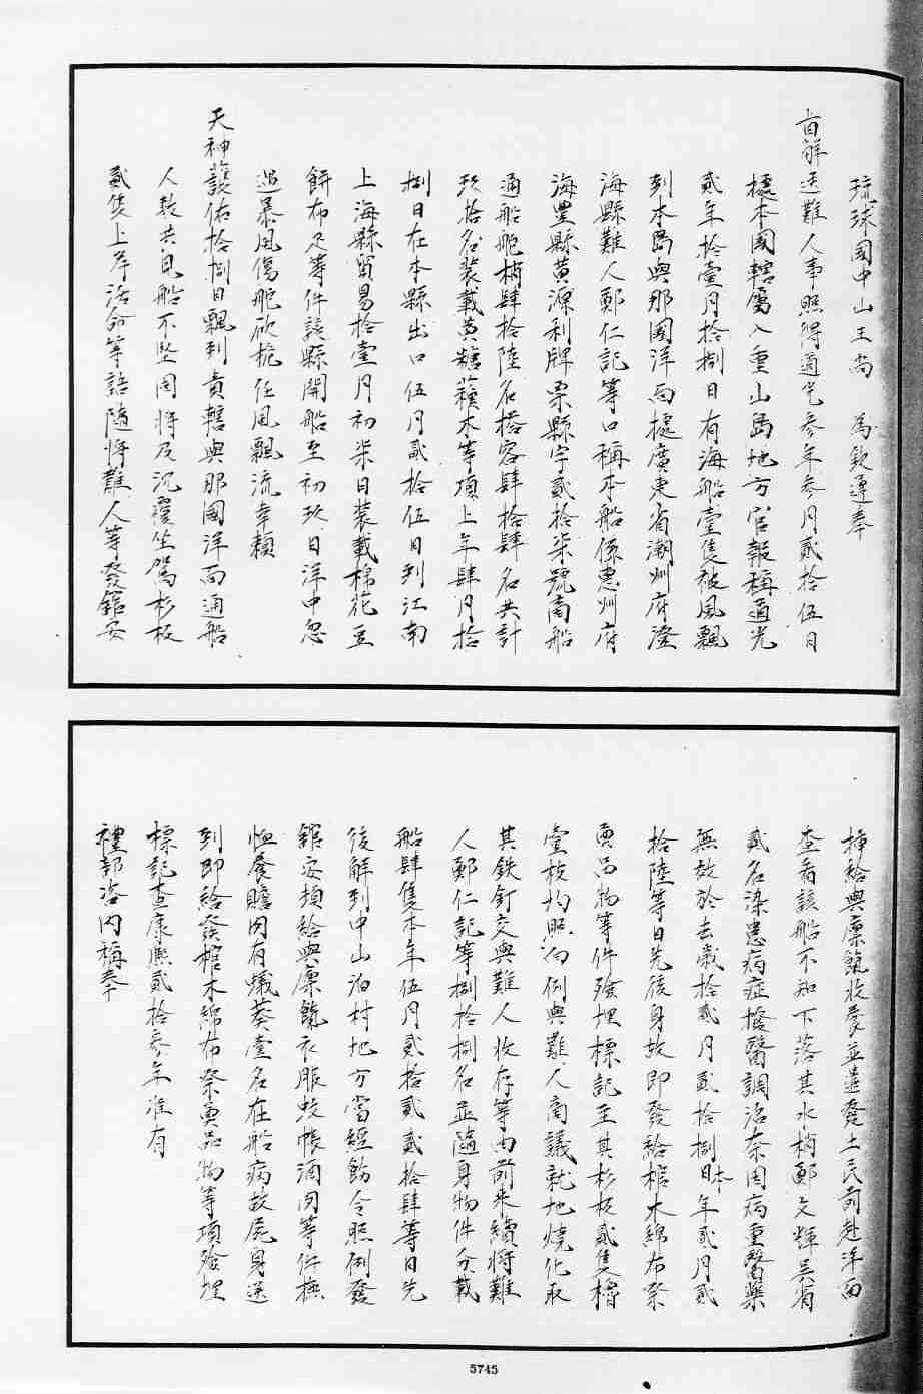 琉球國中山王尚　為欽遵奉
旨解送難人事照得道光參年參月貳拾伍日
據本國轄屬八重山島地方官報稱道光
貳年拾壹月拾捌日有海船壹隻被風飄
到本島與那國洋面據廣東省潮州府澄
海縣難人鄭仁記等口稱本船係惠州府
海豐縣黃源利牌票縣字貳拾柒號商船
通船舵梢肆拾陸名搭客肆拾肆名共計
玖拾名裝載黃糖蘓木等項上年肆月拾
捌日在本縣出口伍月貳拾伍日到江南
上海縣貿易拾壹月初柒日裝載棉花豆
餅布疋等件該縣開船至初玖日洋中忽
遇暴風傷舵砍桅任風飄流幸賴
天神護佑拾捌日飄到貴轄與那國洋面通船
人數共見船不堅固將及沉覆坐駕杉板
貳隻上岸活命等語隨將難人等發館安
插給與廩餼收養並遣發土民前赴洋面
查看該船不知下落其水梢鄭文輝吳省
貳名染患病症撥醫調治奈因病重醫藥
無效於去歲拾貳月貳拾捌日本年貳月貳
拾陸等日先後身故即發給棺木綿布祭
奠品物等件殮埋標記至其杉板貳隻檣
壹枝均照向例與難人商議就地燒化取
其鉄釘交與難人收存等由前來續將難
人鄭仁記等捌拾捌名並隨身物件分載
船肆隻本年伍月貳拾貳貳拾肆等日先
後解到中山泊村地方當經飭令照例發
館安頓給與廩餼衣服蚊帳酒肉等件撫
恤養贍內有蟻葵壹名在船病故屍身送
到即給發棺木綿布祭奠品物等項殮埋
標記查康熙貳拾參年准有
禮部咨內稱奉
5745